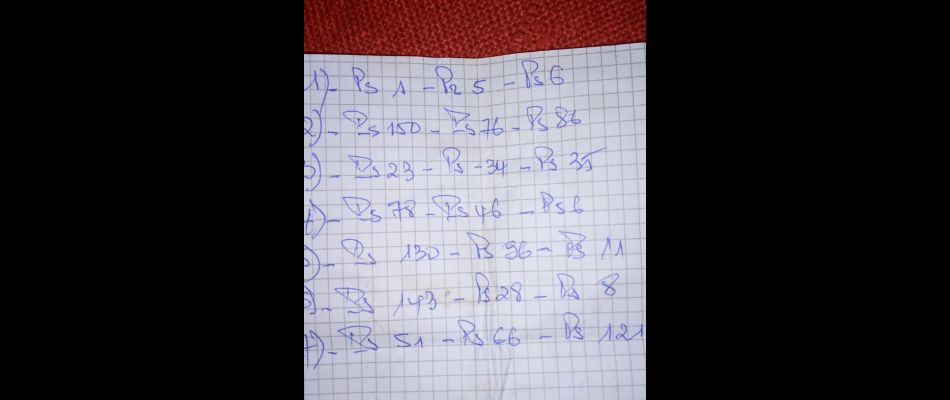 1)- Ps 1 - Ps 5 - Ps 6
2)- Ps 150 - Ps 76 - Ps 86
3)- Ps 23 - Ps -34 - Ps 35
4)- Ps 78 - Ps 46 - Ps 6
5)- Ps 130 - Ps 96 - Ps 11
6)- Ps 143 - Ps 28 - Ps 8
7)- Ps 51 - Ps 66 - Ps 121